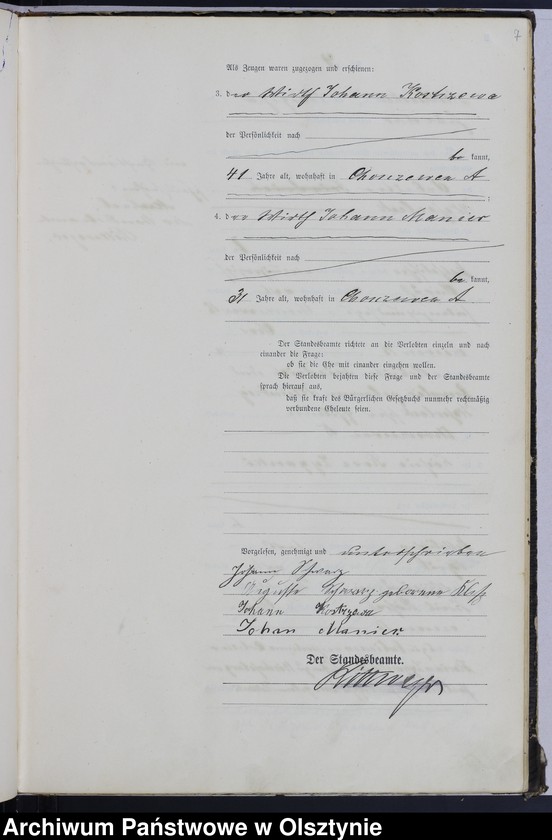 7
Als Zeugen waren zugezogen und erschienen:
3. der Wirth Johann Kostrzewa
der Persönlichkeit nach
be kannt,
41 Jahre alt, wohnhaft in A
4. der Wirth Johann Manier
der Persönlichkeit nach
be kannt,
31 Jahre alt, wohnhaft in A
Der Standesbeamte richtete an die Verlobten einzeln und nach
einander die Frage:
ob sie die Ehe mit einander eingehen wollen.
Die Verlobten bejahten diese Frage und der Standesbeamte
sprach hierauf aus,
daß sie kraft des Bürgerlichen Gesetzbuchs nunmehr rechtmäßig
verbundene Eheleute seien.
Vorgelesen, genehmigt und unterschrieben
Johann Schwarz
Auguste Schwarz geborene
Johann Kostrzewa
Johan Manier
Der Standesbeamte.
Archiwum Państwowe w Olsztynie